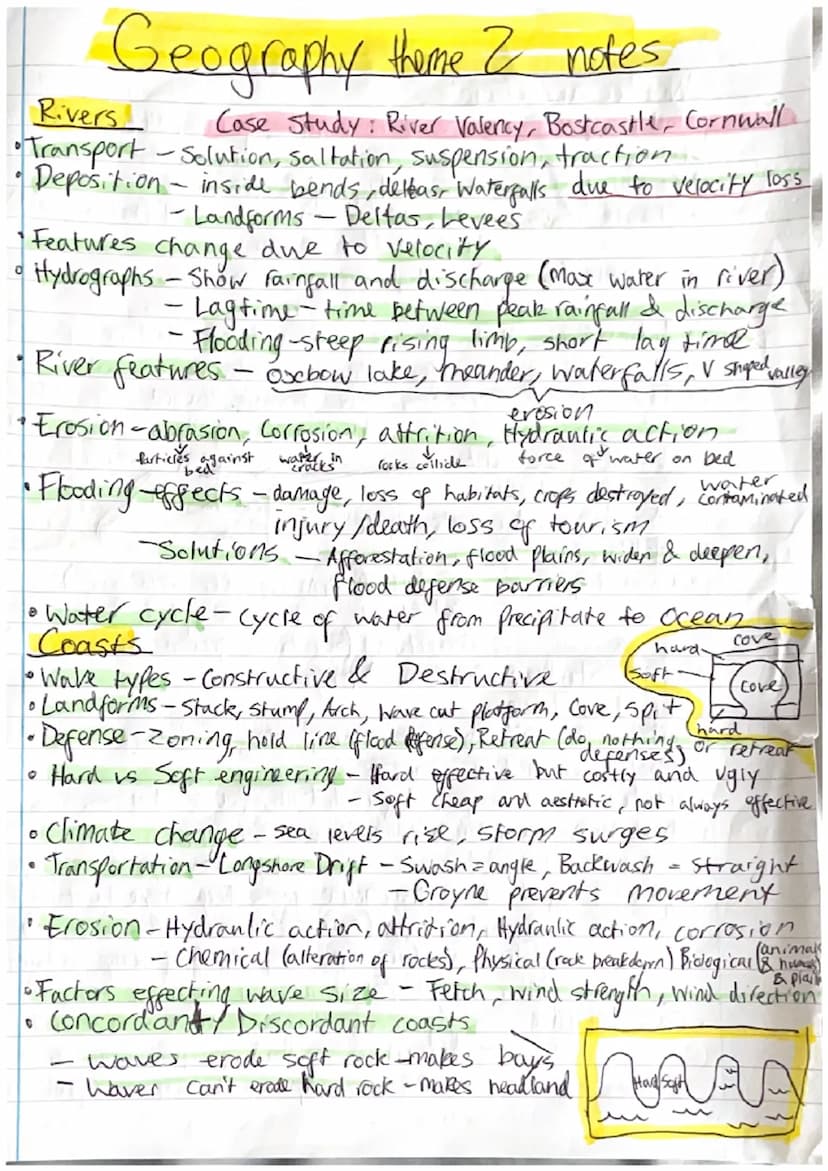 Geography theme 2 notes
Rivers
Case study: River Valency, Bostcastle, Cornwall
• Transport - Solution, saltation, suspension, traction
• Deposition - inside bends, deltas, waterfalls due to velocity loss
- Landforms - Deltas, Levees
• Features change due to velocity
• Hydrographs - Show rainfall and discharge (max water in river)
- Lagtime - time between peak rainfall & discharge
- Flooding - steep rising limb, short lag time
• River features - oxbow lake, meander, waterfalls, V shaped valley
erosion
• Erosion - abrasion, Corrosion, attrition, Hydraulic action
particles against bed
water in cracks
rocks collide
force of water on bed
• Flooding - effects - damage, loss of habitats, crops destroyed, water contaminated
injury/death, loss of tourism
- Solutions - Afforestation, flood plains, widen & deepen,
flood defense barriers
• Water cycle - cycle of water from precipitate to ocean
Coasts
• Wave types - Constructive & Destructive
• Landforms - Stack, stump, Arch, wave cut platform, Cove, spit
hard
cove
soft
cove
hard
• Defense - Zoning, hold line (flood defense), Retreat (do nothing or retreat
defenses)
• Hard vs Soft engineering - Hard effective but costly and ugly
- Soft cheap and aesthetic, not always effective
• Climate change - sea levels rise, storm surges
• Transportation - Longshore Drift - Swash = angle, Backwash = straight
- Groyne prevents movement
• Erosion - Hydraulic action, attrition, Hydraulic action, corrosion
- Chemical (alteration of rocks), Physical (rock breakdown) Biological (animals & humans & plants
• Factors effecting wave size - Fetch, wind strength, wind direction
• Concordant / Discordant coasts
- waves erode soft rock - makes bays
- Waves can't erode hard rock - makes headland
Hard Soft